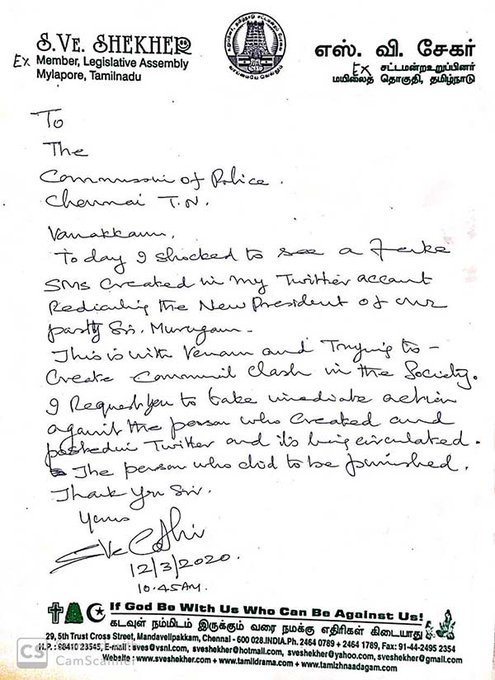 S.VE. SHEKHER
Ex Member, Legislative Assembly
Mylapore, Tamilnadu
எஸ். வி. சேகர்
Ex சட்டமன்றஉறுப்பினர்
மயிலைத் தொகுதி, தமிழ்நாடு
To
The
Commissioner of Police.
Chennai T.N.
Vanakkam.
Today I shocked to see a Fake
SMS created in my Twitter account
Rediculing the New President of our
party Sri. Murugan.
This is with Venam and Trying to -
Create Communil clash in the Society.
I Request you to take imediate action
against the person who created and
posted in Twitter and it's being circulated.
The person who did to be punished.
Thank you Sir.
Yours
12/3/2020.
10.45AM.
If God Be With Us Who Can Be Against Us!
கடவுள் நம்மிடம் இருக்கும் வரை நமக்கு எதிரிகள் கிடையாது
29, 5th Trust Cross Street, Mandavelipakkam, Chennai - 600 028.INDIA.Ph. 2464 0789 + 2464 1789, Fax: 91-44-2495 2354
H.P. : 98410 23545, E-mail : sves@vsnl.com, sveshekher@hotmail.com, sveshekher@yahoo.com, sveshekher@gmail.com
Website : www.sveshekher.com + www.tamildrama.com + www.tamizhnaadagam.com
CS CamScanner